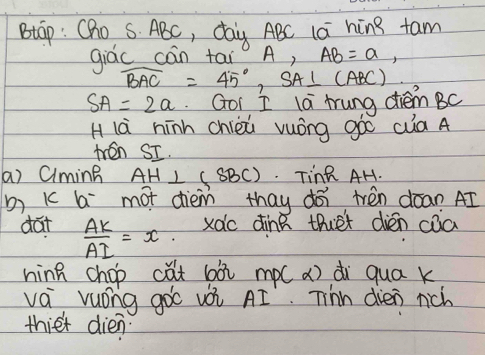 Btập: Cho S.ABC, đáy ABC là hình tam
giác cân tại A, AB = a,
BAC = 45°, SA⊥ (ABC).
SA = 2a. Gọi I là trung điểm BC
H là hình chiếu vuông góc của A
trên SI.
a) Cminh AH ⊥ (SBC). Tính AH.
b) K là một điểm thay đổi trên đoạn AI
đặt AK/AI = x. xác định thiết diện của
hình chóp cắt bởi mp(α) đi qua K
và vuông góc với AI. Tính diện tích
thiết diện.